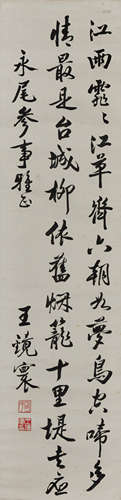 江雨霏〻江草齊六朝如夢鳥空啼多
情最是台城柳依舊烟籠十里堤書應
永尾參事雅正
王鏡寰